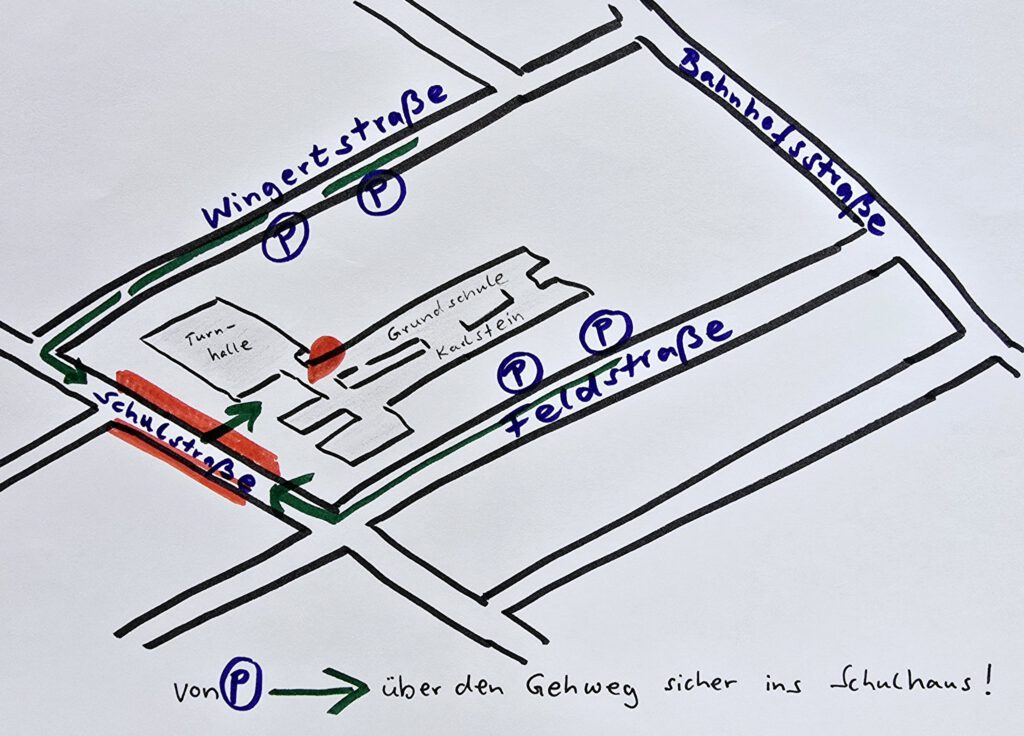 Bahnhofsstraße
Wingertstraße
P
P
Turn-
halle
Grundschule
Karlstein
P
P
Feldstraße
Schulstraße
von P → über den Gehweg sicher ins Schulhaus!